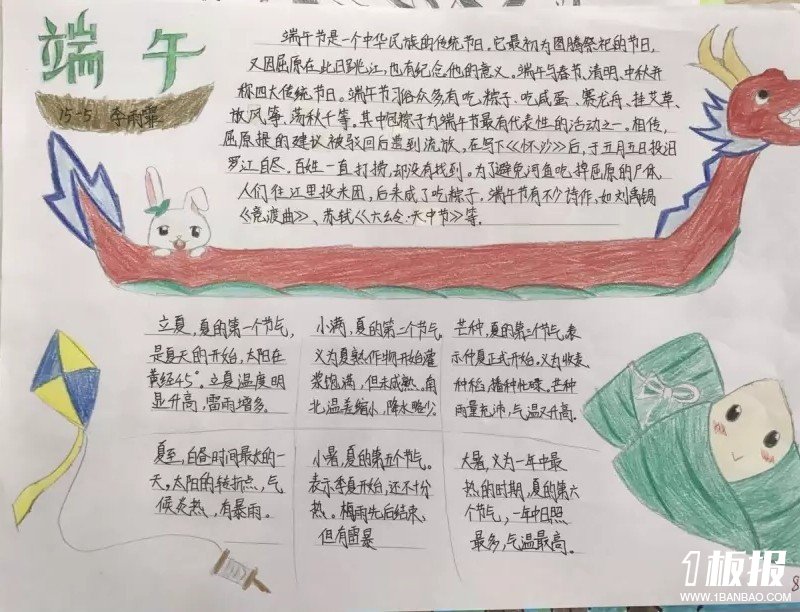 端午
15-5 李雨霏
端午节是一个中华民族的传统节日。它最初为图腾祭祀的节日,
又因屈原在此日跳江,也有纪念他的意义。端午与春节、清明、中秋并
称四大传统节日。端午节习俗众多有吃粽子、吃咸蛋、赛龙舟、挂艾草、
放风筝、荡秋千等。其中包粽子为端午节最有代表性的活动之一。相传,
屈原提的建议被驳回后遭到流放,在写下《怀沙》后,于五月五日投汨
罗江自尽。百姓一直打捞,却没有找到。为了避免河鱼吃掉屈原的尸体,
人们往江里投米团,后来成了吃粽子。端午节有不少诗作,如刘禹锡
《竞渡曲》、苏轼《六幺令·天中节》等。
立夏,夏的第一个节气,
是夏天的开始,太阳在
黄经45°。立夏温度明
显升高,雷雨增多。
小满,夏的第二个节气。
义为夏熟作物开始灌
浆饱满,但未成熟。南
北温差缩小,降水略少。
芒种,夏的第三个节气,表
示仲夏正式开始,义为收麦
种稻,播种忙碌。芒种
雨量充沛,气温又升高。
夏至,白昼时间最长的一
天。太阳的转折点,气
候炎热,有暴雨。
小暑,夏的第五个节气。
表示季夏开始,还不十分
热。梅雨先后结束,
但有雷暴
大暑,义为一年中最
热的时期,夏的第六
个节气,一年中日照
最多,气温最高。
1板报
WWW.1BANBAO.COM
8